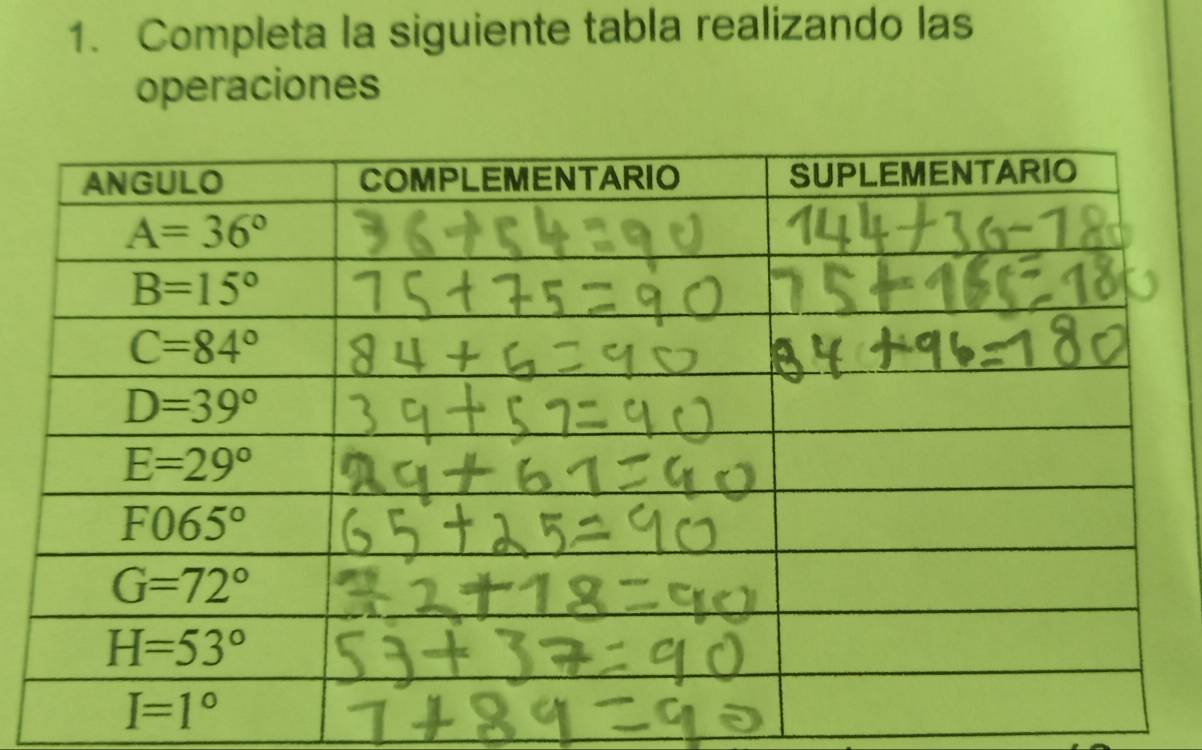 1. Completa la siguiente tabla realizando las
operaciones
ANGULO COMPLEMENTARIO SUPLEMENTARIO
A= 36° 36+54=90 144+36-180
B=15° 15+75=90 15+165=180
C=84° 84+6=90 84+96=180
D=39° 39+51=90
E=29° 29+61=90
F065° 65+25=90
G=72° 72+18=90
H=53° 53+37=90
I=1° 1+89=90